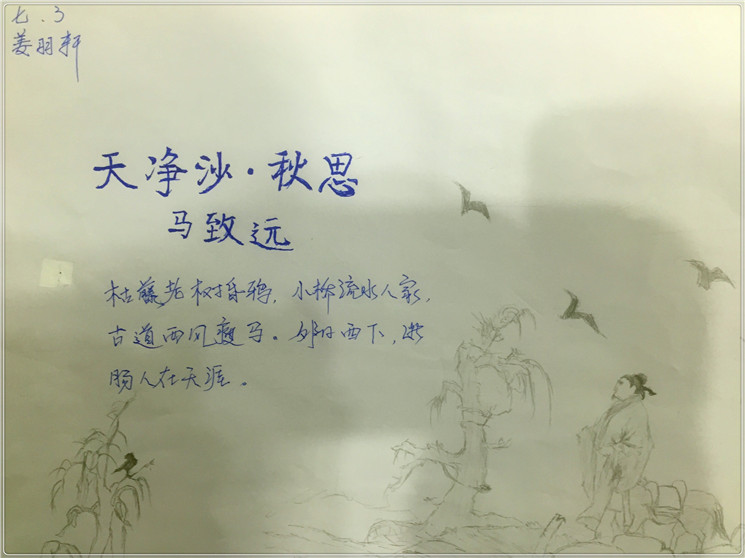 七.3
姜羽轩
天净沙·秋思
马致远
枯藤老树昏鸦，小桥流水人家，
古道西风瘦马。夕阳西下，断
肠人在天涯。